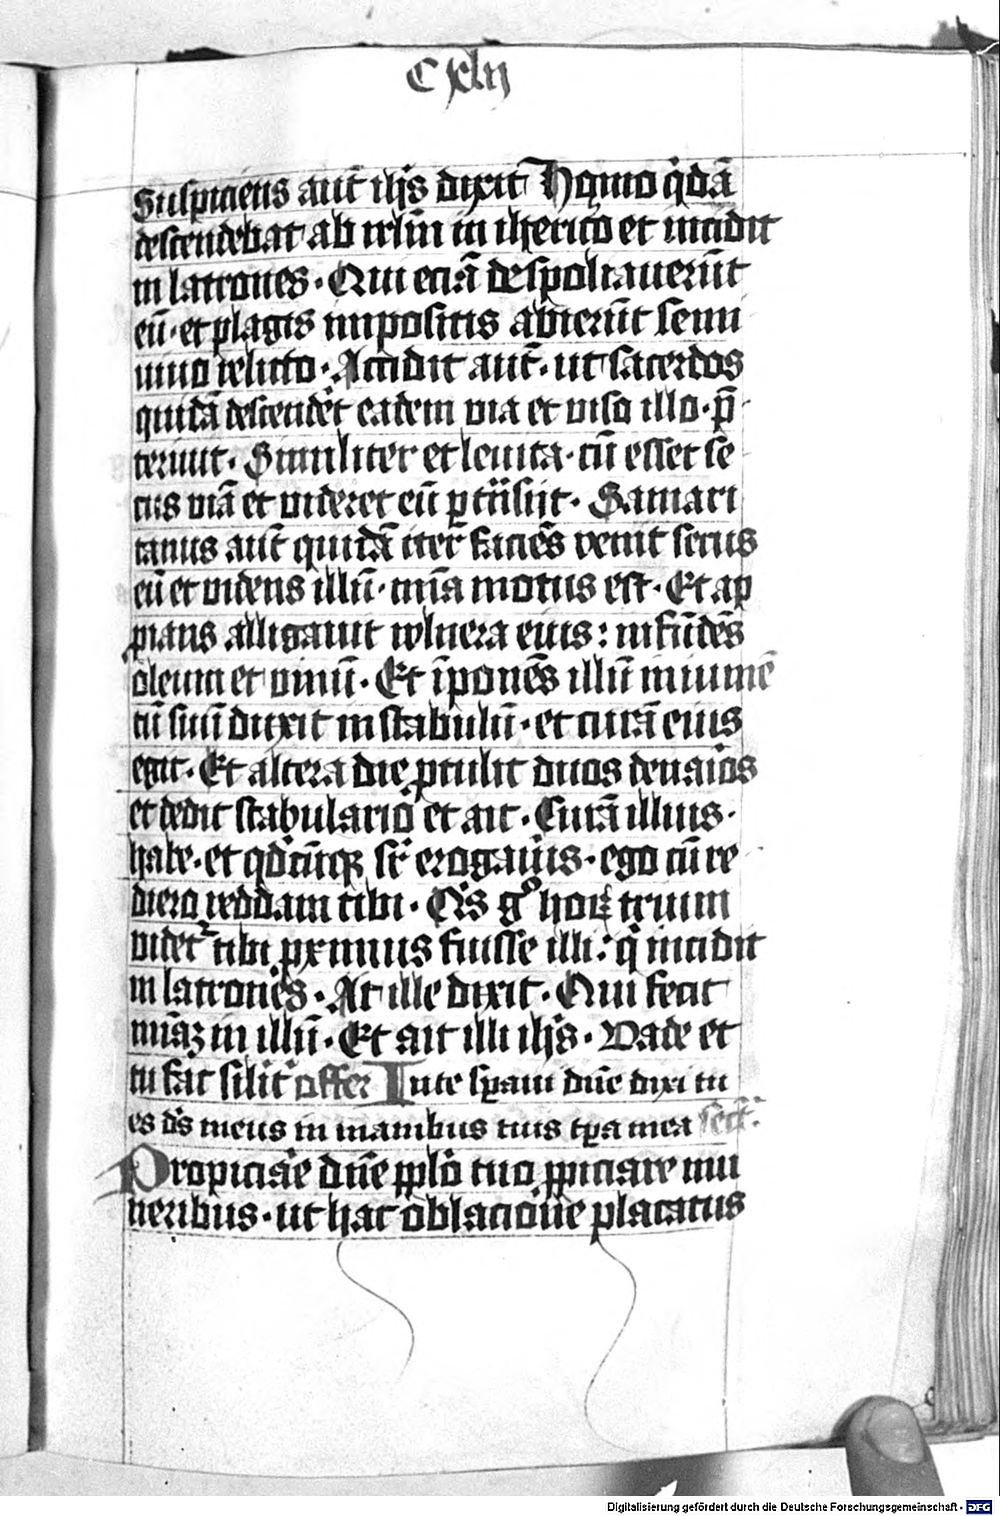 C xlij
Suspiciens aut̄ ih̄s dixit Homo q̇dā
descendebat ab irl̄m in iherico et incidit
in latrones · Qui eciā despoliauerūt
eū · et plagis impositis abierūt semi
uiuo relicto · Accidit aut̄ · ut sacerdos
quidā descender̄t eadem uia et uiso illo · p̄
teriuit · Similiter et leuita · cū esset se
cus uiā et uideret eū p̱tn̄sijt · Samari
tanus aut̄ quidā iter̄ faciēs venit secus
eū et uidens illū · mīa motus est · Et ap
pians alligauit wlnera eius : infūdēs
oleum et uinū · Et īponēs illū in iumē
tū suū duxit in stabulū · et curā eius
egit · Et altera die ꝓtulit duos denaīos
et dedit stabulario et ait · Curā illius ·
habe · et qd̄cūqꝫ sr̄ erogauīs · ego cū re
diero reddam tibi · Qis gͦ hoꝝ trium
videtᷣ tibi pxmius fuisse illi : q̇ incidit
in latrones · At ille dixit · Qui fecit
mīaꝫ in illū · Et ait illi ih̄s · Vade et
tu fac sil̄it̄ offer In te sꝑaui dn̄e dixi tu
es ds̄ meus in manibus tuis tꝑa mea secr̄ :
Propiciāe dn̄e ppl̄o tuo ꝓpiciare mu
neribus · ut hac oblacione placatus
Digitalisierung gefördert durch die Deutsche Forschungsgemeinschaft - DFG